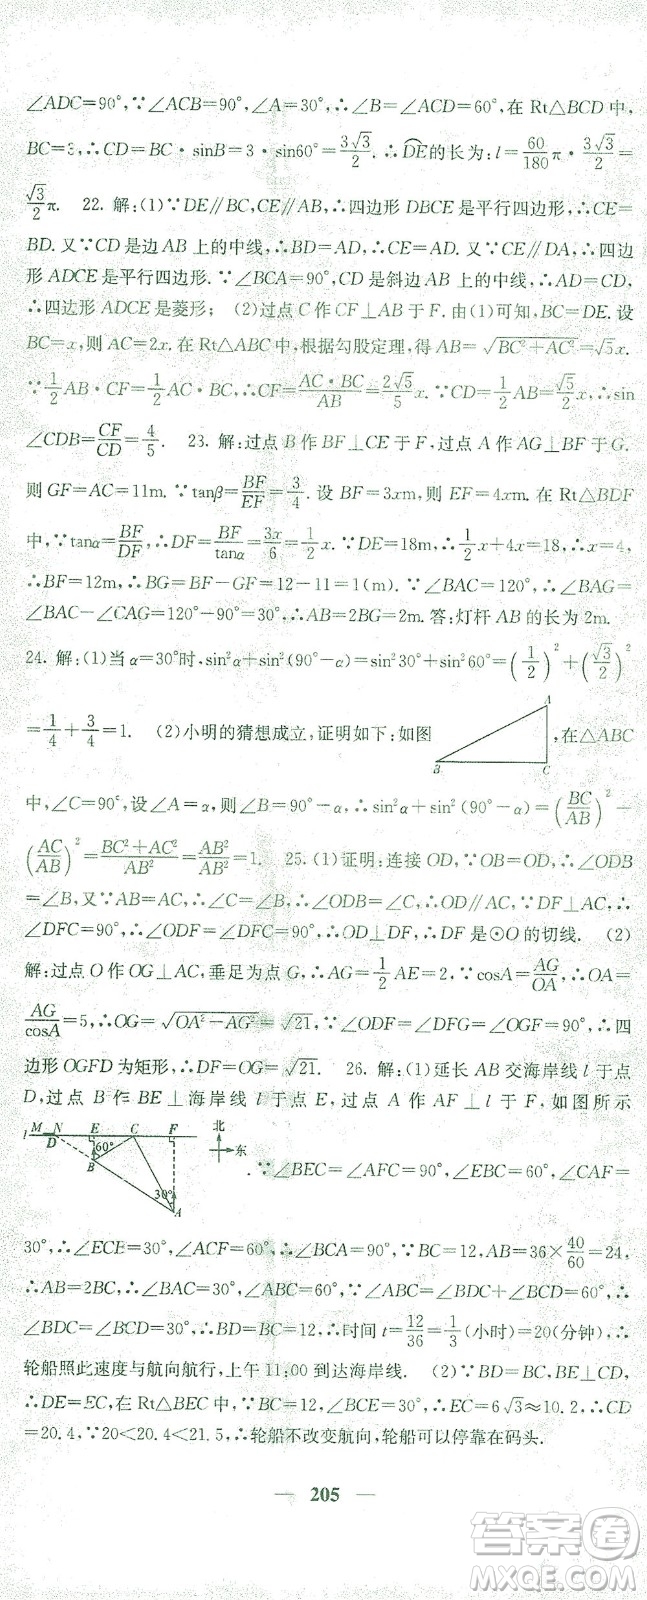 ∠ADC=90°,∵∠ACB=90°,∠A=30°,∴∠B=∠ACD=60°,在 Rt△BCD 中,
BC=3,∴CD=BC·sinB=3·sin60°=3√3/2.∴DE的长为:l=60/180 π·3√3/2=
√3/2 π. 22. 解:(1)∵DE∥BC,CE∥AB,∴四边形 DBCE 是平行四边形,∴CE=
BD.又∵CD 是边 AB 上的中线,∴BD=AD,∴CE=DA.又∵CE∥DA,∴四边
形 ADCE 是平行四边形.∵∠BCA=90°,CD 是斜边 AB 上的中线,∴AD=CD,
∴四边形 ADCE 是菱形; (2)过点 C 作 CF⊥AB 于 F.由(1)可知,BC=DE.设
BC=x,则 AC=2x.在 Rt△ABC 中,根据勾股定理,得 AB=√(BC²+AC²)=√5x.
∵1/2 AB·CF=1/2 AC·BC,∴CF=AC·BC/AB=2√5/5 x.∵CD=1/2 AB=√5/2 x,∴sin
∠CDB=CF/CD=4/5. 23. 解:过点 B 作 BF⊥CE 于 F,过点 A 作 AG⊥BF 于 G.
则 GF=AC=11m.∵tanβ=BF/EF=3/4.设 BF=3xm,则 EF=4xm.在 Rt△BDF
中,∵tanα=BF/DF,∴DF=BF/tanα=3x/6=1/2 x.∵DE=18m,∴1/2 x+4x=18,∴x=4,
∴BF=12m,∴BG=BF-GF=12-11=1(m).∵∠BAC=120°,∴∠BAG=
∠BAC-∠CAG=120°-90°=30°,∴AB=2BG=2m.答:灯杆 AB 的长为 2m.
24. 解:(1)当 α=30°时,sin²α+sin²(90°-α)=sin²30°+sin²60°=(1/2)²+(√3/2)²
=1/4+3/4=1. (2)小明的猜想成立,证明如下:如图 A B C ,在△ABC
中,∠C=90°,设∠A=α,则∠B=90°-α,∴sin²α+sin²(90°-α)=(BC/AB)²-
(AC/AB)²=(BC²+AC²)/AB²=AB²/AB²=1. 25. (1)证明:连接 OD,∵OB=OD,∴∠ODB
=∠B,又∵AB=AC,∴∠C=∠B,∴∠ODB=∠C,∴OD∥AC,∵DF⊥AC,∴
∠DFC=90°,∴∠ODF=∠DFC=90°,∴OD⊥DF,∴DF 是⊙O 的切线. (2)
解:过点 O 作 OG⊥AC,垂足为点 G,∴AG=1/2 AE=2,∵cosA=AG/OA,∴OA=
AG/cosA=5,∴OG=√(OA²-AG²)=√21,∵∠ODF=∠DFG=∠OGF=90°,∴四
边形 OGFD 为矩形,∴DF=OG=√21. 26. 解:(1)延长 AB 交海岸线 l 于点
D,过点 B 作 BE⊥海岸线 l 于点 E,过点 A 作 AF⊥l 于 F,如图所示
l M N D E C F 60° B 30° A 北 东 .∵∠BEC=∠AFC=90°,∠EBC=60°,∠CAF=
30°,∴∠ECB=30°,∠ACF=60°,∴∠BCA=90°,∵BC=12,AB=36×40/60=24,
∴AB=2BC,∴∠BAC=30°,∠ABC=60°,∵∠ABC=∠BDC+∠BCD=60°,∴
∠BDC=∠BCD=30°,∴BD=BC=12,∴时间 t=12/36=1/3(小时)=20(分钟),∴
轮船照此速度与航向航行,上午 11:00 到达海岸线. (2)∵BD=BC,BE⊥CD,
∴DE=EC,在 Rt△BEC 中,∵BC=12,∠BCE=30°,∴EC=6√3≈10.2,∴CD
=20.4,∵20<20.4<21.5,∴轮船不改变航向,轮船可以停靠在码头.
— 205 —
答案圈
MXQE.COM